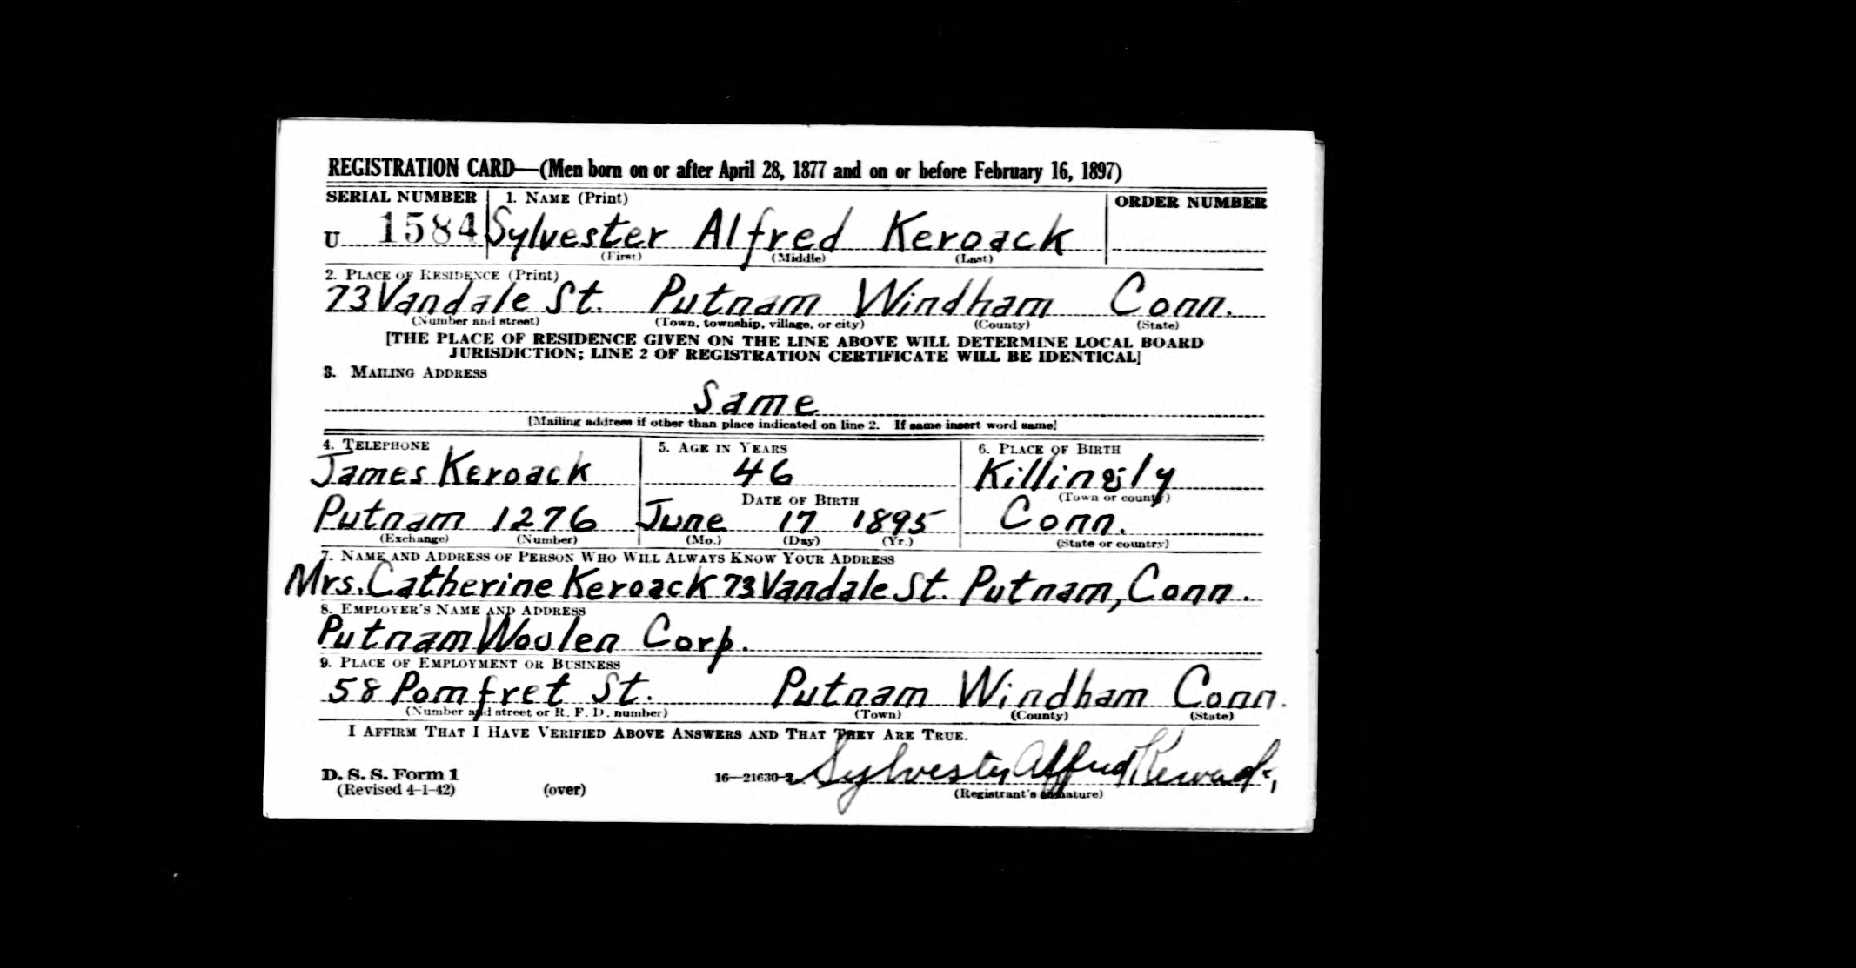 REGISTRATION CARD—(Men born on or after April 28, 1877 and on or before February 16, 1897)
SERIAL NUMBER 1. NAME (Print) ORDER NUMBER
U 1584 Sylvester Alfred Keroack
(First) (Middle) (Last)
2. PLACE OF RESIDENCE (Print)
73 Vandale St. Putnam Windham Conn.
(Number and street) (Town, township, village, or city) (County) (State)
[THE PLACE OF RESIDENCE GIVEN ON THE LINE ABOVE WILL DETERMINE LOCAL BOARD
JURISDICTION; LINE 2 OF REGISTRATION CERTIFICATE WILL BE IDENTICAL]
3. MAILING ADDRESS
Same
[Mailing address if other than place indicated on line 2. If same insert word same]
4. TELEPHONE 5. AGE IN YEARS 6. PLACE OF BIRTH
James Keroack 46 Killingly
DATE OF BIRTH (Town or county)
Putnam 1276 June 17 1895 Conn.
(Exchange) (Number) (Mo.) (Day) (Yr.) (State or country)
7. NAME AND ADDRESS OF PERSON WHO WILL ALWAYS KNOW YOUR ADDRESS
Mrs. Catherine Keroack 73 Vandale St. Putnam, Conn.
8. EMPLOYER'S NAME AND ADDRESS
Putnam Woolen Corp.
9. PLACE OF EMPLOYMENT OR BUSINESS
58 Pomfret St. Putnam Windham Conn.
(Number and street or R. F. D. number) (Town) (County) (State)
I AFFIRM THAT I HAVE VERIFIED ABOVE ANSWERS AND THAT THEY ARE TRUE.
D. S. S. Form 1 16—21630-2 Sylvester Alfred Keroack
(Revised 4-1-42) (over) (Registrant's signature)